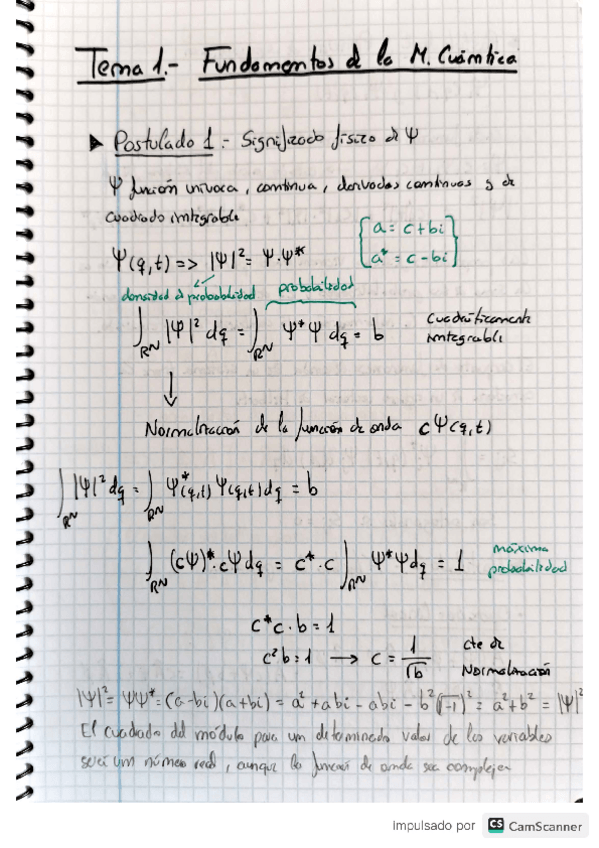 Tema 1.- Fundamentos de la M. Cuántica
▶ Postulado 1.- Significado físico de Ψ
Ψ función unívoca, continua, derivadas continuas y de
cuadrado integrable
{a = c + bi
Ψ(q,t) => |Ψ|² = Ψ·Ψ*
a* = c - bi}
densidad de probabilidad
probabilidad
∫_RN |Ψ|² dq = ∫_RN Ψ*Ψ dq = b
Cuadráticamente
integrable
↓
Normalización de la función de onda cΨ(q,t)
∫_RN |Ψ|² dq = ∫_RN Ψ*(q,t) Ψ(q,t) dq = b
∫_RN (cΨ)*·cΨ dq = c*·c ∫_RN Ψ*Ψ dq = 1
máxima
probabilidad
c*c·b = 1
c²b = 1 → c = 1/√b
cte de
Normalización
|Ψ|² = ΨΨ* = (a-bi)(a+bi) = a² + abi - abi - b²(√-1)² = a² + b² = |Ψ|²
El cuadrado del módulo para un determinado valor de las variables
será un número real, aunque la función de onda sea compleja
Impulsado por CS CamScanner